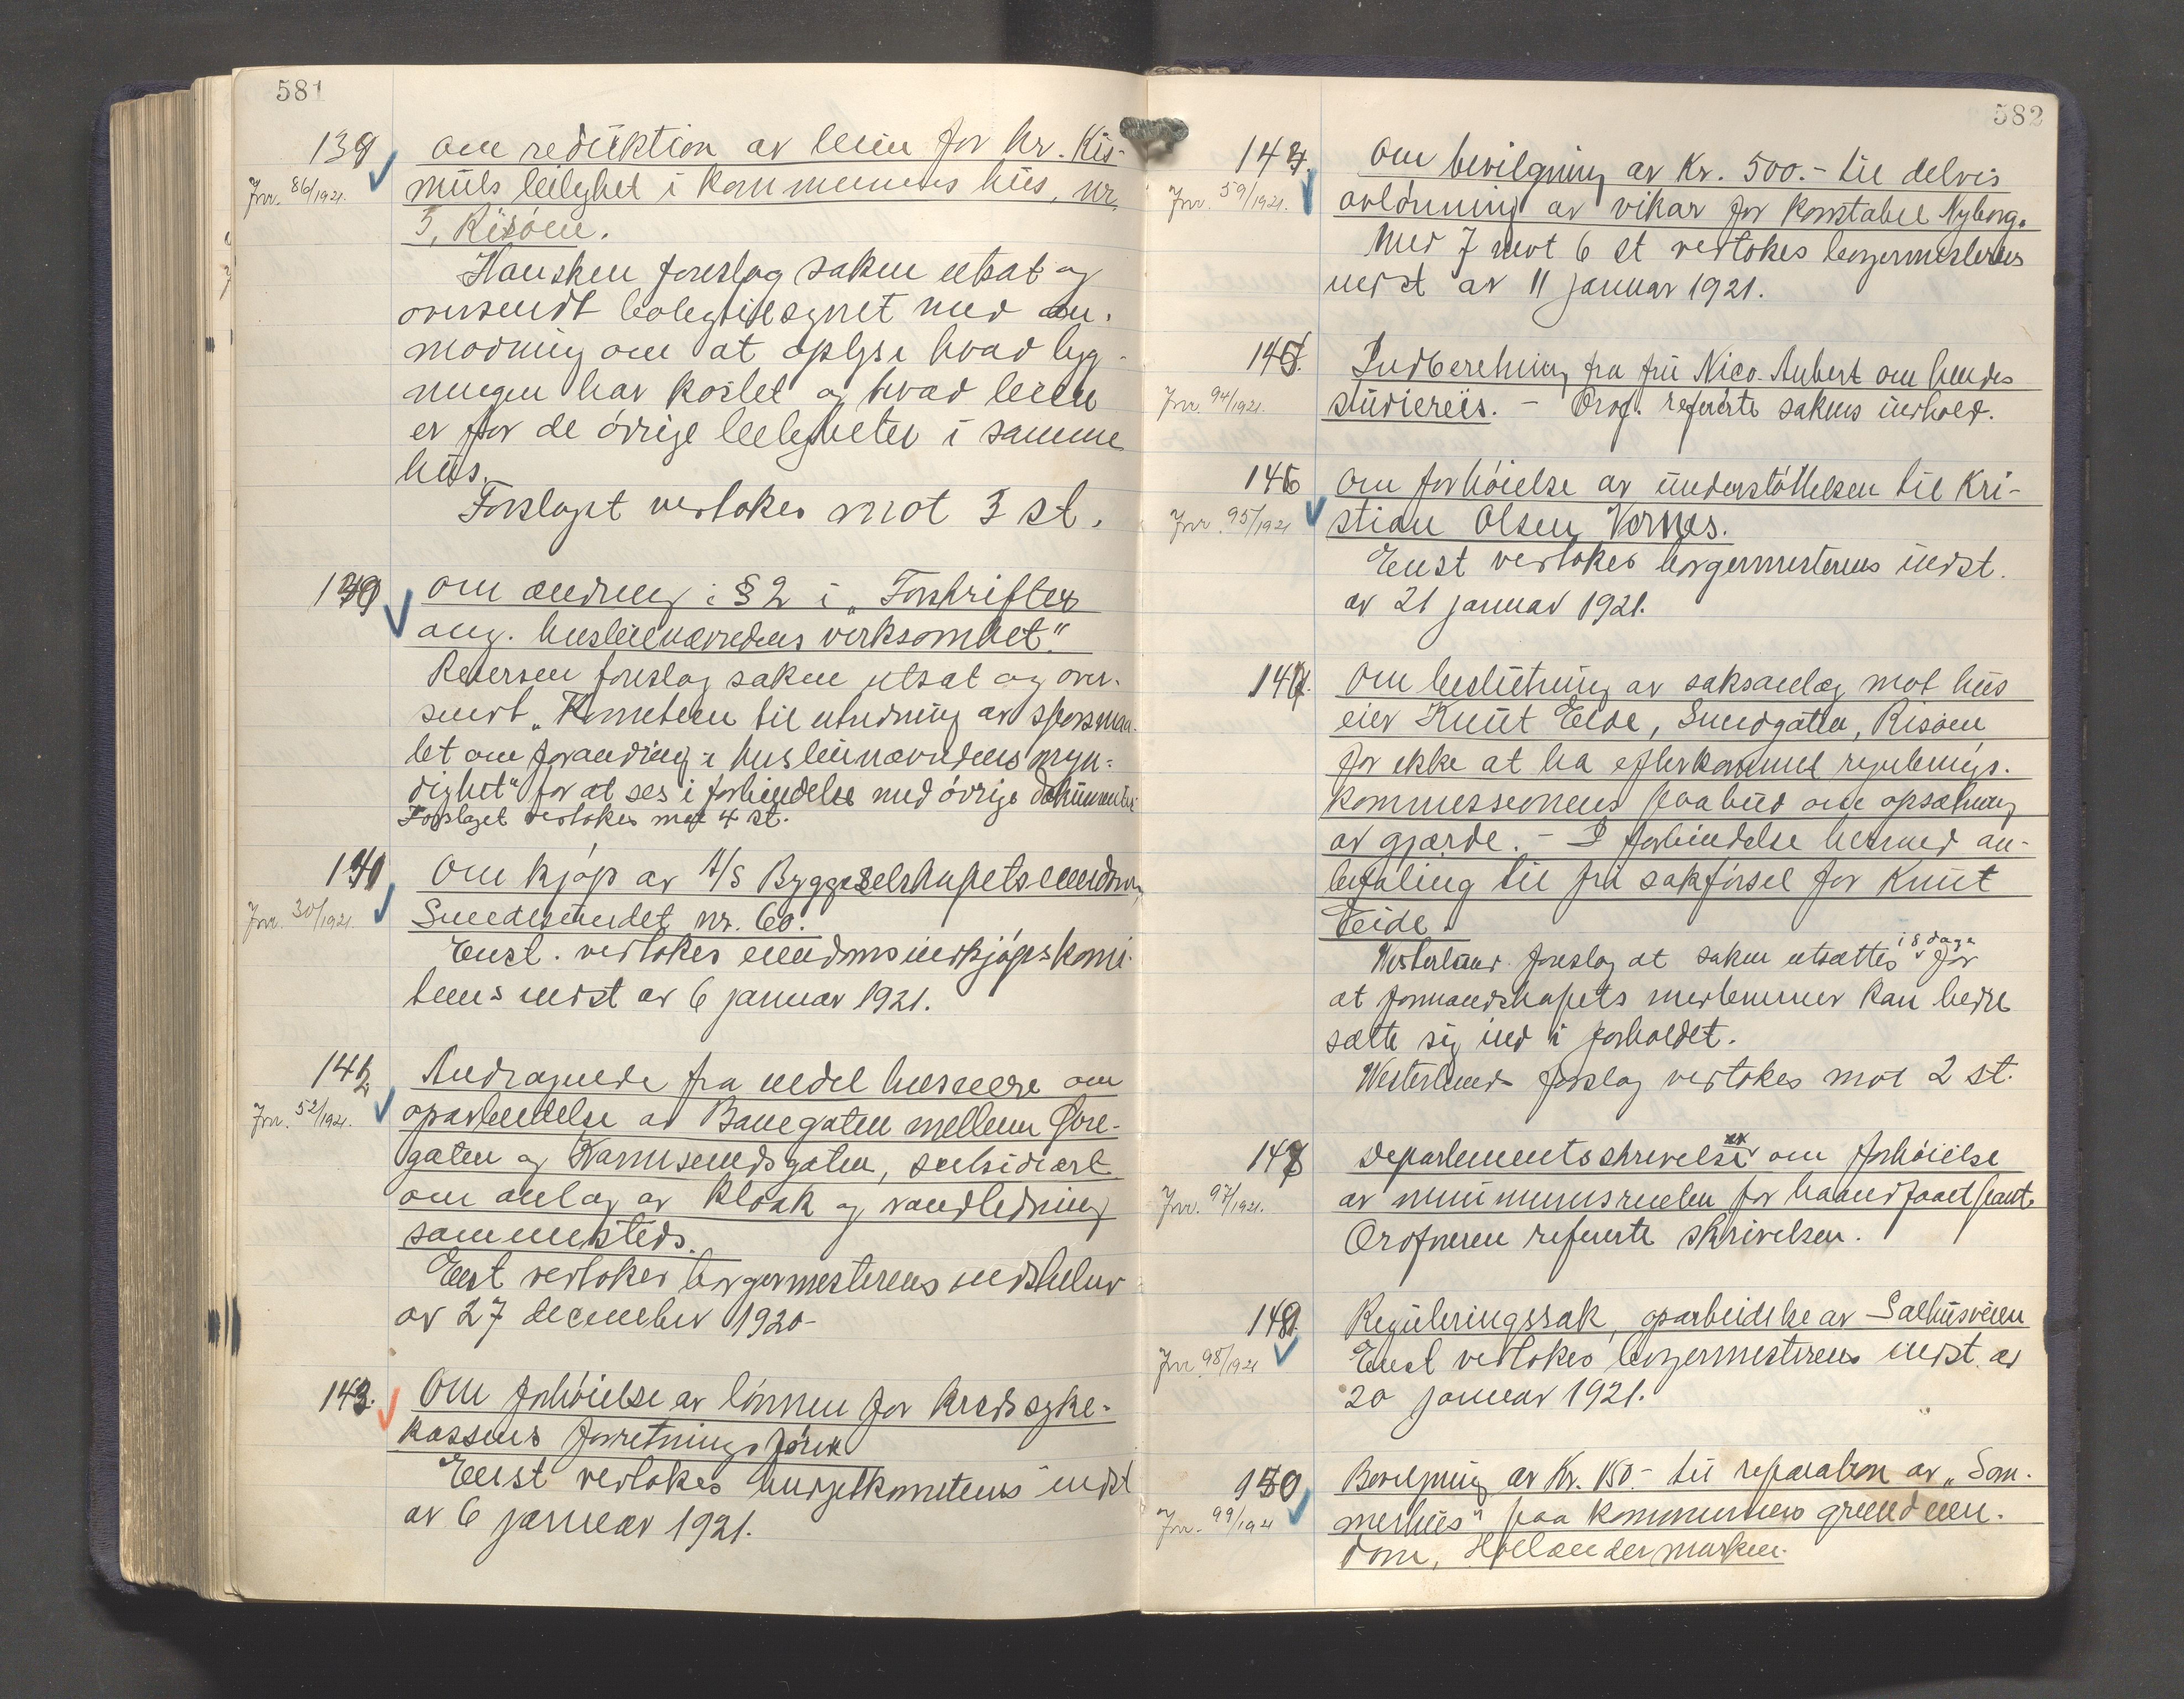 581
138
Jnr. 86/1921.
om reduktion av leien for hr. Kis-
muls leilighet i kommunens hus, nr.
5, Risöen.
Hausken foreslog saken utsat og
oversendt boligtilsynet med an-
modning om at oplyse hvad byg-
ningen har kostet og hvad leien
er for de övrige leiligheter i samme
hus.
Forslaget vedtokes mot 3 st.
139
om ændring i § 2 i "Forskrifter
ang. husleienævndens virksomhet".
Petersen foreslog saken utsat og over-
sendt "Komiteen til utredning av spörsmaa-
let om forandring i husleienævndens myn-
dighet" for at ses i forbindelse med övrige dokumenter
Forslaget vedtokes mot 4 st.
141
Jnr. 30/1921.
Om kjöp av A/S Byggeselskapets eiendom,
Smedesundet nr. 60.
Enst. vedtokes eiendomsindkjöpskomi-
teens indst av 6 januar 1921.
142
Jnr. 52/1921.
Andragende fra endel huseiere om
oparbeidelse av Banegaten mellem Övre-
gaten og Karmsundsgaten, subsidiært
om anlæg av kloak og vandledning
sammesteds.
Enst vedtokes borgermesterens indstilling
av 27 december 1920-
143.
Om forhöielse av lönnen for kredssyke-
kassens forretningsförer
Enst vedtokes budgetkomiteens indst
av 6 januar 1921.
582
144.
Jnr. 59/1921.
Om bevilgning av Kr. 500.- til delvis
avlönning av vikar for konstabel Nyborg.
Med 7 mot 6 st vedtokes borgermesterens
indst av 11 januar 1921.
145.
Jnr. 94/1921.
Indberetning fra fru Nico. Aubert om hendes
studiereis. - Ordf. refererte sakens indhold.
146
Jnr. 95/1921
Om forhöielse av understöttelsen til Kri-
stian Olsen Vornes.
Enst vedtokes borgermesterens indst.
av 21 januar 1921.
147.
Om beslutning av saksanlæg mot hus
eier Knut Eide, Sundgaten, Risöen
for ikke at ha efterkommet regulerings-
kommissionens paabud om opsætning
av gjærde. - I forbindelse hermed an-
befaling til fri sakförsel for Knut
Eide.
Westerlund foreslog at saken utsættes i 8 dage for
at formandskapets medlemmer kan bedre
sætte sig ind i forholdet.
Westerlunds forslag vedtokes mot 2 st.
148
Jnr. 97/1921.
Departementsskrivelse om forhöielse
av minimumsrenten for haandfaaet pant.
Ordföreren refererte skrivelsen.
149.
Jnr. 98/1921
Reguleringssak, oparbeidelse av Salhusveien
Enst vedtokes borgermesterens indst. av
20 januar 1921.
150
Jnr. 99/1921
Bevilgning av Kr. 150.- til reparation av "Som-
merhus" paa kommunens grundeien-
dom, Hollendermarken.